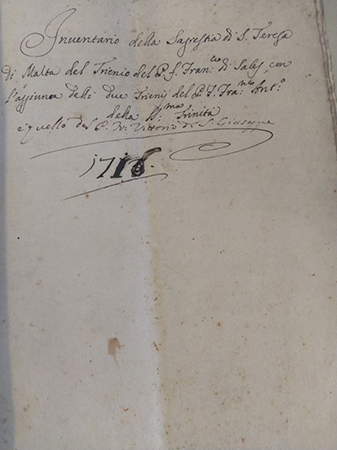 Inventario della Sagrestia di S. Teresa
di Malta del Trienio del P. f. Fran.co di Sales, con
l'aggiunta delli due Trienij del P. f. Fra: Ant.o
della SS.ma Trinità
e quello del P. N. Vittorio di S. Giuseppe
1716.